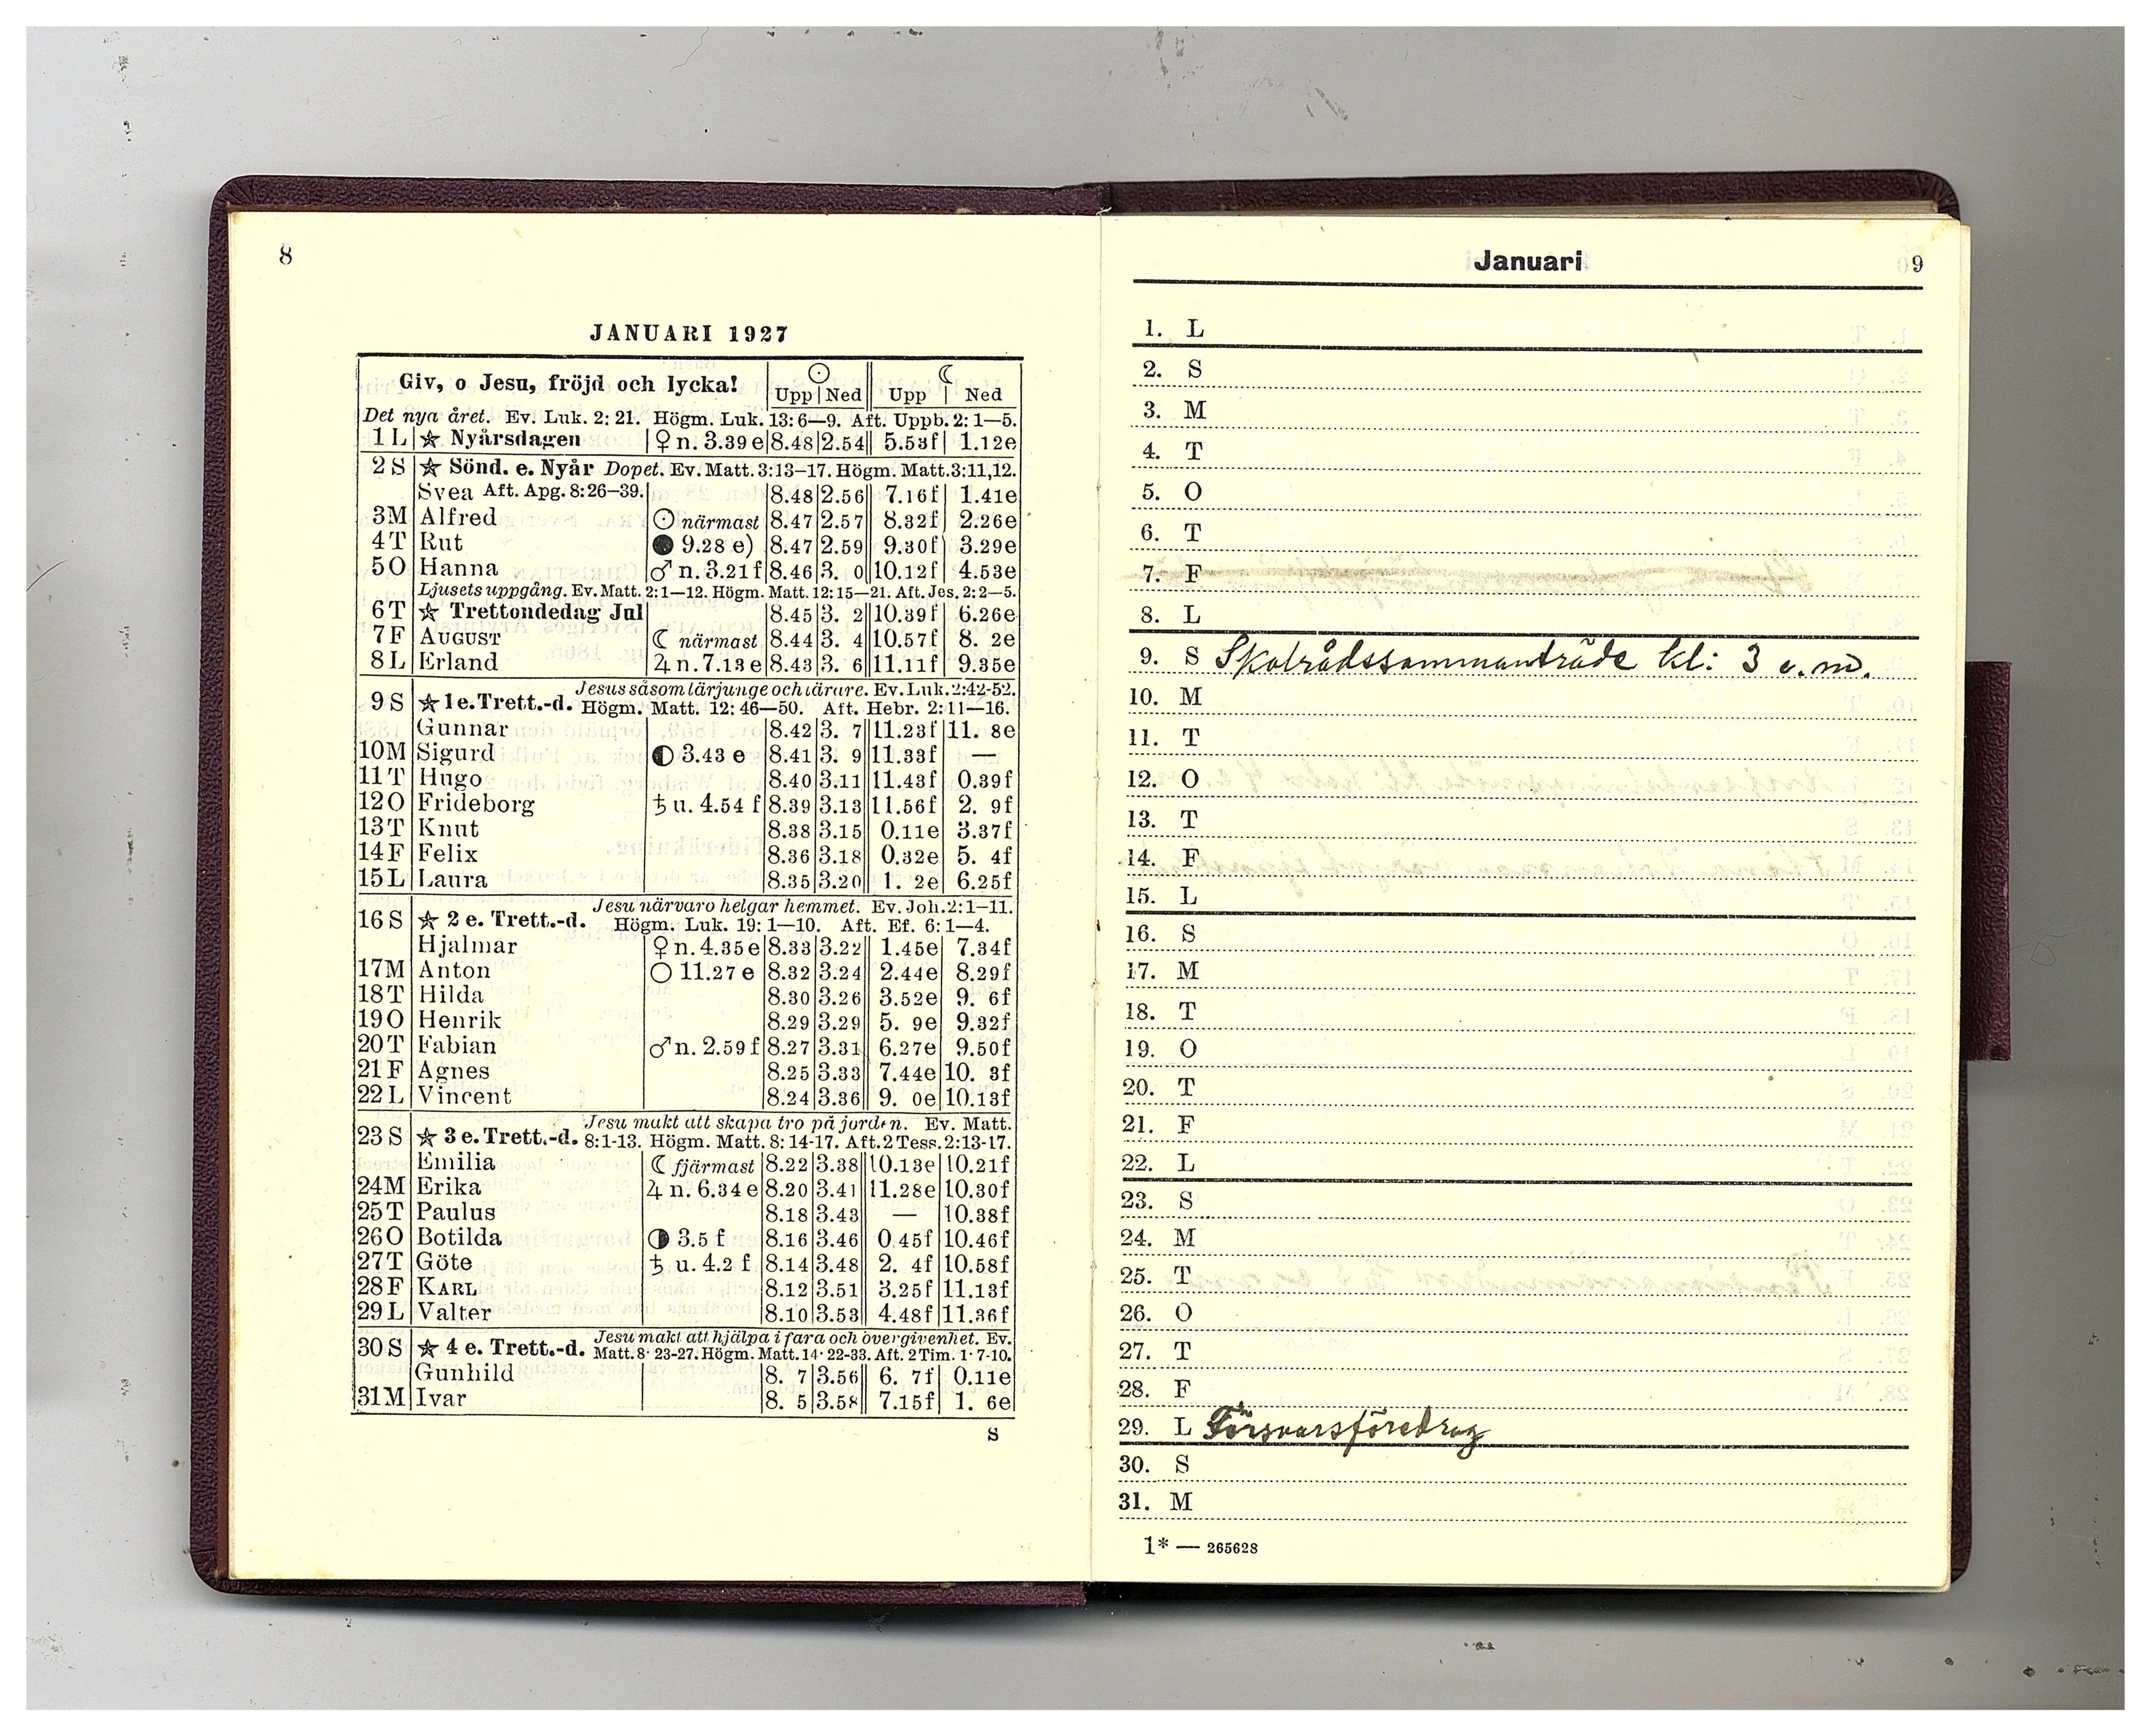 8
JANUARI 1927
Giv, o Jesu, fröjd och lycka! ☉ ☾
Upp Ned Upp Ned
Det nya året. Ev. Luk. 2: 21. Högm. Luk. 13: 6—9. Aft. Uppb. 2: 1—5.
1 L ☆ Nyårsdagen ♀ n. 3.39 e 8.48 2.54 5.53f 1.12e
2 S ☆ Sönd. e. Nyår Dopet. Ev. Matt. 3:13—17. Högm. Matt. 3:11,12.
Svea Aft. Apg. 8:26—39. 8.48 2.56 7.16f 1.41e
3 M Alfred ☉ närmast 8.47 2.57 8.32f 2.26e
4 T Rut ● 9.28 e) 8.47 2.59 9.30f 3.29e
5 O Hanna ♂ n. 3.21 f 8.46 3. 0 10.12f 4.53e
Ljusets uppgång. Ev. Matt. 2:1—12. Högm. Matt. 12:15—21. Aft. Jes. 2:2—5.
6 T ☆ Trettondedag Jul 8.45 3. 2 10.39f 6.26e
7 F AUGUST ☾ närmast 8.44 3. 4 10.57f 8. 2e
8 L Erland ♃ n. 7.13 e 8.43 3. 6 11.11f 9.35e
Jesus såsom lärjunge och lärare. Ev. Luk. 2:42-52.
9 S ☆ 1 e. Trett.-d. Högm. Matt. 12: 46—50. Aft. Hebr. 2: 11—16.
Gunnar 8.42 3. 7 11.23f 11. 8e
10 M Sigurd ◐ 3.43 e 8.41 3. 9 11.33f —
11 T Hugo 8.40 3.11 11.43f 0.39f
12 O Frideborg ♄ u. 4.54 f 8.39 3.13 11.56f 2. 9f
13 T Knut 8.38 3.15 0.11e 3.37f
14 F Felix 8.36 3.18 0.32e 5. 4f
15 L Laura 8.35 3.20 1. 2e 6.25f
Jesu närvaro helgar hemmet. Ev. Joh. 2:1—11.
16 S ☆ 2 e. Trett.-d. Högm. Luk. 19: 1—10. Aft. Ef. 6: 1—4.
Hjalmar ♀ n. 4.35 e 8.33 3.22 1.45e 7.34f
17 M Anton ○ 11.27 e 8.32 3.24 2.44e 8.29f
18 T Hilda 8.30 3.26 3.52e 9. 6f
19 O Henrik 8.29 3.29 5. 9e 9.32f
20 T Fabian ♂ n. 2.59 f 8.27 3.31 6.27e 9.50f
21 F Agnes 8.25 3.33 7.44e 10. 3f
22 L Vincent 8.24 3.36 9. 0e 10.13f
Jesu makt att skapa tro på jorden. Ev. Matt.
23 S ☆ 3 e. Trett.-d. 8:1-13. Högm. Matt. 8: 14-17. Aft. 2 Tess. 2:13-17.
Emilia ☾ fjärmast 8.22 3.38 10.13e 10.21f
24 M Erika ♃ n. 6.34 e 8.20 3.41 11.28e 10.30f
25 T Paulus 8.18 3.43 — 10.38f
26 O Botilda ◑ 3.5 f 8.16 3.46 0.45f 10.46f
27 T Göte ♄ u. 4.2 f 8.14 3.48 2. 4f 10.58f
28 F KARL 8.12 3.51 3.25f 11.13f
29 L Valter 8.10 3.53 4.48f 11.36f
Jesu makt att hjälpa i fara och övergivenhet. Ev.
30 S ☆ 4 e. Trett.-d. Matt. 8: 23-27. Högm. Matt. 14: 22-33. Aft. 2 Tim. 1: 7-10.
Gunhild 8. 7 3.56 6. 7f 0.11e
31 M Ivar 8. 5 3.58 7.15f 1. 6e
S
Januari 9
1. L
2. S
3. M
4. T
5. O
6. T
7. F
8. L
9. S Skolrådssammanträde kl: 3 e.m.
10. M
11. T
12. O
13. T
14. F
15. L
16. S
17. M
18. T
19. O
20. T
21. F
22. L
23. S
24. M
25. T
26. O
27. T
28. F
29. L Försvarsföredrag
30. S
31. M
1* — 265628